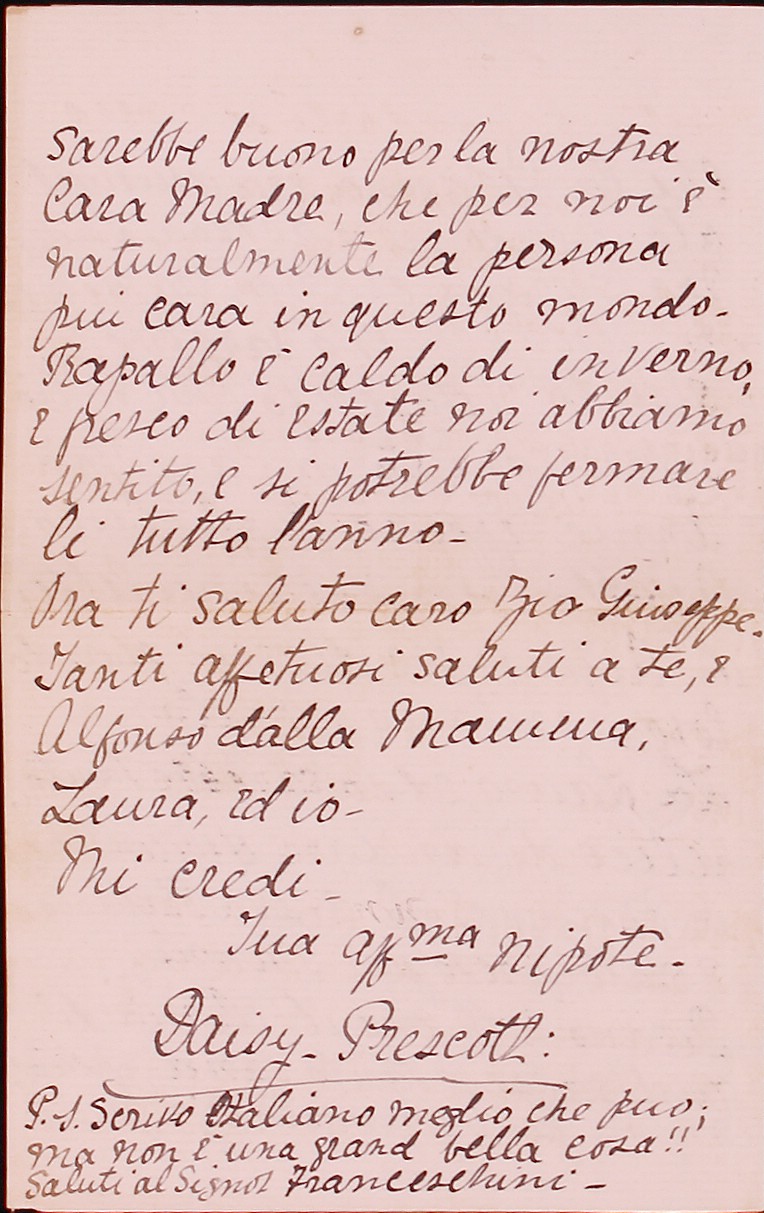 sarebbe buono per la nostra
Cara Madre, che per noi è
naturalmente la persona
pui cara in questo mondo-
Rapallo è caldo di inverno,
e fresco di estate noi abbiamo
sentito, e si potrebbe fermare
li tutto l'anno-
Ora ti saluto caro Zio Giuseppe.
Tanti affetuosi saluti a te, e
Alfonso d'alla Mamma,
Laura, ed io-
Mi credi-
Tua affma nipote-
Daisy- Prescott:
P.S. Scrivo Italiano meglio che puo;
ma non è una grand bella cosa!!
Saluti al Signor Franceschini-